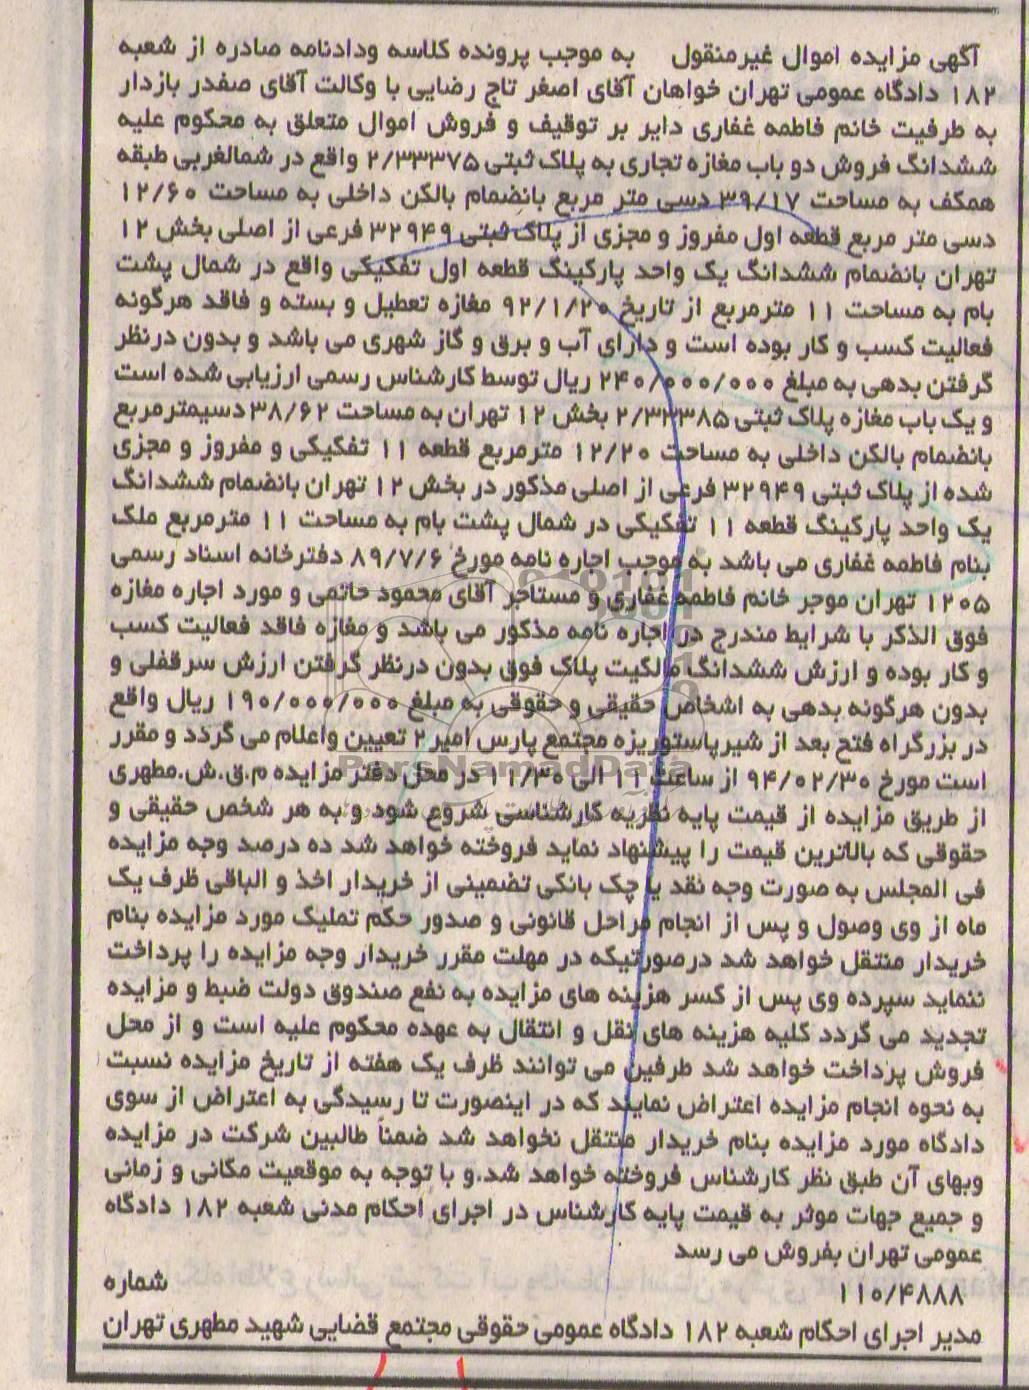 آگهی مزایده اموال غیرمنقول به موجب پرونده کلاسه ودادنامه صادره از شعبه
۱۸۲ دادگاه عمومی تهران خواهان آقای اصغر تاج رضایی با وکالت آقای صفدر بازدار
به طرفیت خانم فاطمه غفاری دایر بر توقیف و فروش اموال متعلق به محکوم علیه
ششدانگ فروش دو باب مغازه تجاری به پلاک ثبتی ۲/۳۳۳۷۵ واقع در شمالغربی طبقه
همکف به مساحت ۳۹/۱۷ دسی متر مربع بانضمام بالکن داخلی به مساحت ۱۲/۶۰
دسی متر مربع قطعه اول مفروز و مجزی از پلاک ثبتی ۳۲۹۴۹ فرعی از اصلی بخش ۱۲
تهران بانضمام ششدانگ یک واحد پارکینگ قطعه اول تفکیکی واقع در شمال پشت
بام به مساحت ۱۱ مترمربع از تاریخ ۹۲/۱/۲۰ مغازه تعطیل و بسته و فاقد هرگونه
فعالیت کسب و کار بوده است و دارای آب و برق و گاز شهری می باشد و بدون درنظر
گرفتن بدهی به مبلغ ۲۴۰/۰۰۰/۰۰۰ ریال توسط کارشناس رسمی ارزیابی شده است
و یک باب مغازه پلاک ثبتی ۲/۳۳۳۸۵ بخش ۱۲ تهران به مساحت ۳۸/۶۲ دسیمترمربع
بانضمام بالکن داخلی به مساحت ۱۲/۲۰ مترمربع قطعه ۱۱ تفکیکی و مفروز و مجزی
شده از پلاک ثبتی ۳۲۹۴۹ فرعی از اصلی مذکور در بخش ۱۲ تهران بانضمام ششدانگ
یک واحد پارکینگ قطعه ۱۱ تفکیکی در شمال پشت بام به مساحت ۱۱ مترمربع ملک
بنام فاطمه غفاری می باشد به موجب اجاره نامه مورخ ۸۹/۷/۶ دفترخانه اسناد رسمی
۱۲۰۵ تهران موجر خانم فاطمه غفاری و مستاجر آقای محمود حاتمی و مورد اجاره مغازه
فوق الذکر با شرایط مندرج در اجاره نامه مذکور می باشد و مغازه فاقد فعالیت کسب
و کار بوده و ارزش ششدانگ مالکیت پلاک فوق بدون درنظر گرفتن ارزش سرقفلی و
بدون هرگونه بدهی به اشخاص حقیقی و حقوقی به مبلغ ۱۹۰/۰۰۰/۰۰۰ ریال واقع
در بزرگراه فتح بعد از شیرپاستوریزه مجتمع پارس امیر ۲ تعیین واعلام می گردد و مقرر
است مورخ ۹۴/۰۲/۳۰ از ساعت ۱۱ الی ۱۱/۳۰ در محل دفتر مزایده م.ق.ش.مطهری
از طریق مزایده از قیمت پایه نظریه کارشناسی شروع شود و به هر شخص حقیقی و
حقوقی که بالاترین قیمت را پیشنهاد نماید فروخته خواهد شد ده درصد وجه مزایده
فی المجلس به صورت وجه نقد یا چک بانکی تضمینی از خریدار اخذ و الباقی ظرف یک
ماه از وی وصول و پس از انجام مراحل قانونی و صدور حکم تملیک مورد مزایده بنام
خریدار منتقل خواهد شد درصورتیکه در مهلت مقرر خریدار وجه مزایده را پرداخت
ننماید سپرده وی پس از کسر هزینه های مزایده به نفع صندوق دولت ضبط و مزایده
تجدید می گردد کلیه هزینه های نقل و انتقال به عهده محکوم علیه است و از محل
فروش پرداخت خواهد شد طرفین می توانند ظرف یک هفته از تاریخ مزایده نسبت
به نحوه انجام مزایده اعتراض نمایند که در اینصورت تا رسیدگی به اعتراض از سوی
دادگاه مورد مزایده بنام خریدار منتقل نخواهد شد ضمناً طالبین شرکت در مزایده
وبهای آن طبق نظر کارشناس فروخته خواهد شد.و با توجه به موقعیت مکانی و زمانی
و جمیع جهات موثر به قیمت پایه کارشناس در اجرای احکام مدنی شعبه ۱۸۲ دادگاه
عمومی تهران بفروش می رسد
شماره
۱۱۰/۴۸۸۸
مدیر اجرای احکام شعبه ۱۸۲ دادگاه عمومی حقوقی مجتمع قضایی شهید مطهری تهران
ParsNamadData